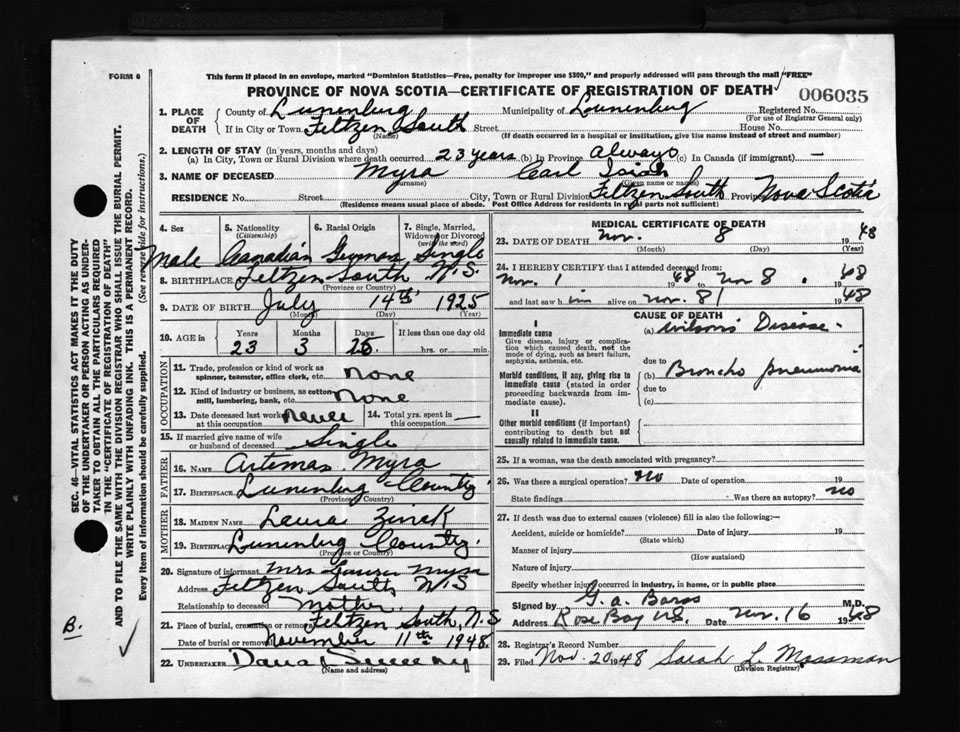 FORM 6
This form if placed in an envelope, marked "Dominion Statistics—Free, penalty for improper use $300," and properly addressed will pass through the mail "FREE"
PROVINCE OF NOVA SCOTIA—CERTIFICATE OF REGISTRATION OF DEATH
006035
1. PLACE OF DEATH
County of Lunenburg Municipality of Lunenburg Registered No.
(For use of Registrar General only)
If in City or Town Feltzen South Street House No.
(Name) (If death occurred in a hospital or institution, give the name instead of street and number)
2. LENGTH OF STAY (in years, months and days)
(a) In City, Town or Rural Division where death occurred 23 years (b) in Province Always (c) In Canada (if immigrant) —
3. NAME OF DECEASED Myra Carl Isiah
(Surname) (Given name or names)
RESIDENCE No. Street City, Town or Rural Division Feltzen South Province Nova Scotia
(Residence means usual place of abode. Post Office Address for residents in rural parts not sufficient)
4. Sex
Male
5. Nationality
(Citizenship)
Canadian
6. Racial Origin
German
7. Single, Married,
Widowed or Divorced
(write the word)
Single
8. BIRTHPLACE Feltzen South N.S.
(Province or Country)
9. DATE OF BIRTH July 14th 1925
(Month) (Day) (Year)
10. AGE in
Years Months Days If less than one day old
23 3 25 hrs. or min.
OCCUPATION
11. Trade, profession or kind of work as
spinner, teamster, office clerk, etc. none
12. Kind of industry or business, as cotton
mill, lumbering, bank, etc. None
13. Date deceased last worked
at this occupation never
14. Total yrs. spent in
this occupation —
15. If married give name of wife
or husband of deceased Single
FATHER
16. NAME Artemas Myra
17. BIRTHPLACE Lunenburg County
(Province or Country)
MOTHER
18. MAIDEN NAME Laura Zinck
19. BIRTHPLACE Lunenburg County
(Province or Country)
20. Signature of informant Mrs Laura Myra
Address Feltzen South N.S
Relationship to deceased Mother.
21. Place of burial, cremation or removal Feltzen South, N.S
Date of burial or removal November 11th 1948.
22. UNDERTAKER
(Name and address)
MEDICAL CERTIFICATE OF DEATH
23. DATE OF DEATH Nov. 8 1948
(Month) (Day) (Year)
24. I HEREBY CERTIFY that I attended deceased from:
Nov. 1 1948 to Nov 8 1948
and last saw him alive on Nov. 8 1948
CAUSE OF DEATH
I
Immediate cause
Give disease, injury or complication which caused death, not the
mode of dying, such as heart failure,
asphyxia, asthenia, etc.
(a) Wilson's Disease
due to
Morbid conditions, if any, giving rise to
immediate cause (stated in order
proceeding backwards from immediate cause).
(b) Broncho pneumonia
due to
(c)
II
Other morbid conditions (if important)
contributing to death but not
causally related to immediate cause.
25. If a woman, was the death associated with pregnancy?
26. Was there a surgical operation? no Date of operation 19
State findings Was there an autopsy? no
27. If death was due to external causes (violence) fill in also the following:—
Accident, suicide or homicide? Date of injury 19
(State which)
Manner of injury
(How sustained)
Nature of injury
Specify whether injury occurred in industry, in home, or in public place
Signed by M.D.
Address Rose Bay N.S. Date Nov. 16 1948
28. Registrar's Record Number
29. Filed Nov. 20 1948 Sarah L. Mossman
(Division Registrar)
SEC. 46—VITAL STATISTICS ACT MAKES IT THE DUTY
OF THE UNDERTAKER OR PERSON ACTING AS UNDERTAKER TO OBTAIN ALL THE PARTICULARS REQUIRED
IN THE "CERTIFICATE OF REGISTRATION OF DEATH"
AND TO FILE THE SAME WITH THE DIVISION REGISTRAR WHO SHALL ISSUE THE BURIAL PERMIT.
WRITE PLAINLY WITH UNFADING INK. THIS IS A PERMANENT RECORD.
Every item of information should be carefully supplied. (See reverse side for instructions.)
B.